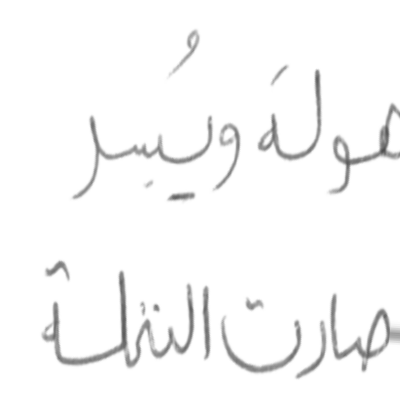 هولة ويُسر
صارت النملة